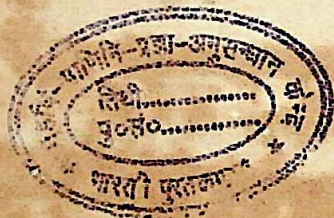 पाणिनि-प्रज्ञा-अनुसन्धान केन्द्र
तिथी..................
पु०सं०..................
* भारती पुस्तकालय *